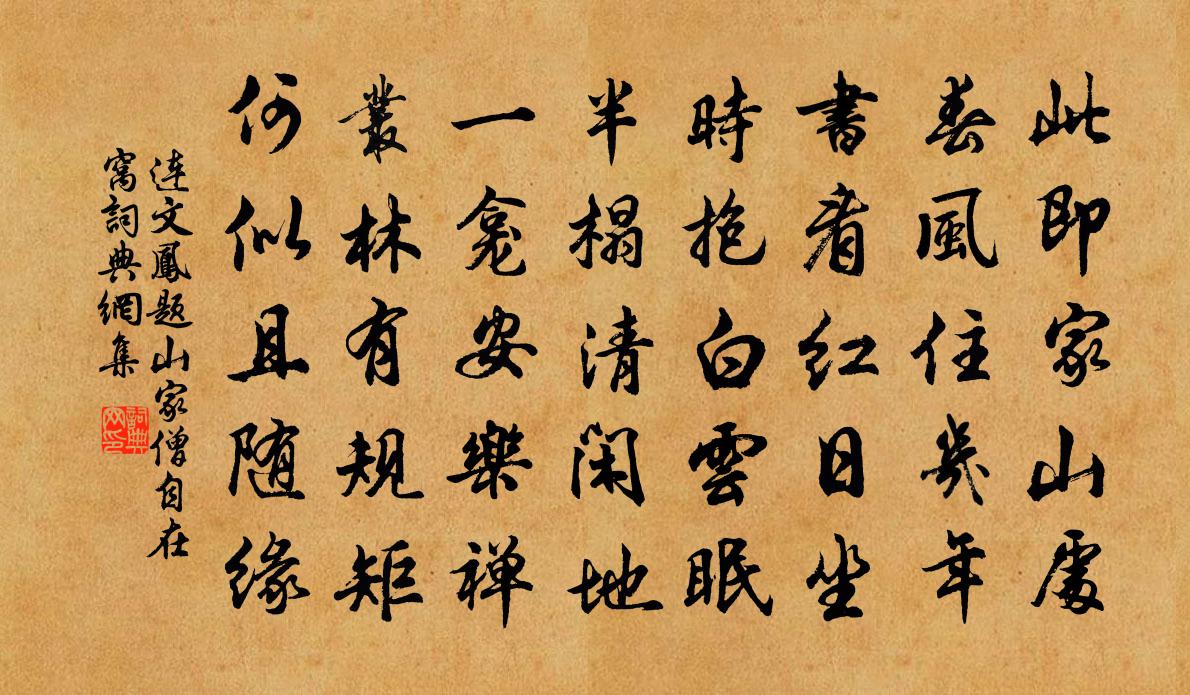 此即家山處
春風住幾年
書看紅日坐
時抱白雲眠
半榻清閑地
一龕安樂禅
叢林有規矩
何似且随緣
連文鳳題山家僧自在
窩詞典網集
詞典
网印